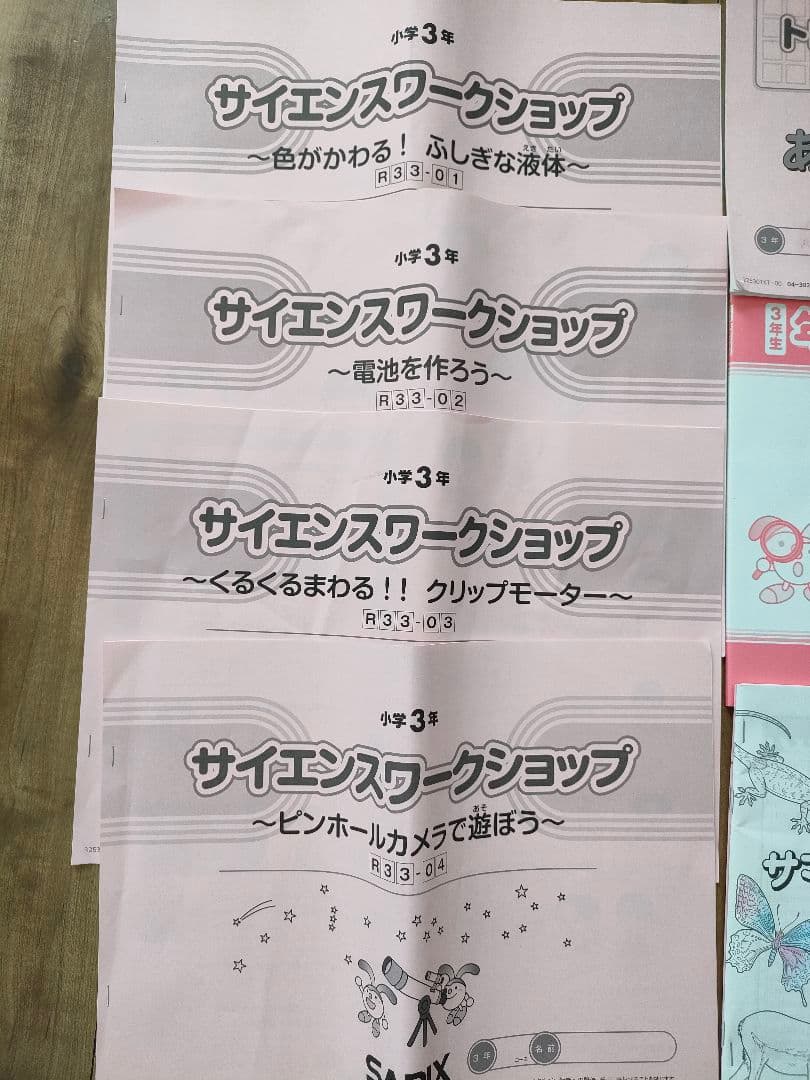 小学3年
サイエンスワークショップ
～色がかわる！ ふしぎな液体～
えき たい
R33-01
小学3年
サイエンスワークショップ
～電池を作ろう～
R33-02
小学3年
サイエンスワークショップ
～くるくるまわる！！ クリップモーター～
R33-03
小学3年
サイエンスワークショップ
～ピンホールカメラで遊ぼう～
あそ
R33-04
SAPIX
3年
コース
名前
ト
あ
3年
3年生
サ